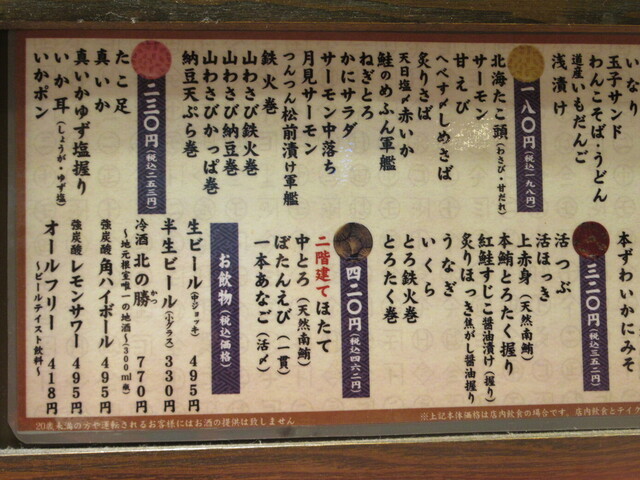 いなり
玉子サンド
わんこそば・うどん
道産いもだんご
浅漬け
一八〇円(税込一九八円)
北海たこ頭(わさび・甘だれ)
サーモン
甘えび
へべす〆しめさば
炙りさば
天日塩〆赤いか
鮭のめふん軍艦
ねぎとろ
かにサラダ
サーモン中落ち
月見サーモン
つんつん松前漬け軍艦
鉄火巻
山わさび鉄火巻
山わさび納豆巻
山わさびかっぱ巻
納豆天ぷら巻
二三〇円(税込二五三円)
たこ足
真いか
真いかゆず塩握り
いか耳(しょうが・ゆず塩)
いかポン
本ずわいかにみそ
三二〇円(税込三五二円)
活つぶ
活ほっき
上赤身(天然南鮪)
本鮪とろたく握り
紅鮭すじこ醤油漬け(握り)
炙りほっき焦がし醤油握り
うなぎ
いくら
とろ鉄火巻
とろたく巻
四二〇円(税込四六二円)
二階建てほたて
中とろ(天然南鮪)
ぼたんえび(一貫)
一本あなご(活〆)
お飲物(税込価格)
生ビール(中ジョッキ) 495円
半生ビール(小グラス) 330円
冷酒 北の勝 770円
かつ
～地元根室唯一の地酒～(300ml瓶)
強炭酸 角ハイボール 495円
強炭酸 レモンサワー 495円
オールフリー 418円
～ビールテイスト飲料～
※上記本体価格は店内飲食の場合です。店内飲食とテイク
20歳未満の方や運転されるお客様にはお酒の提供は致しません